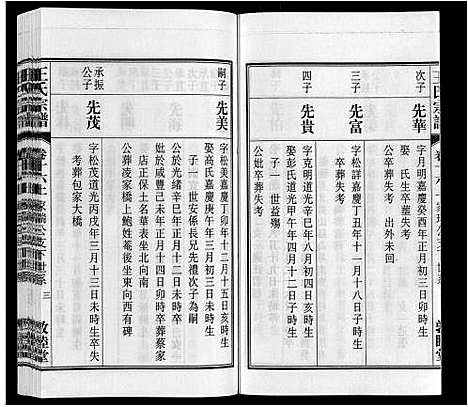 王氏宗譜
次子
先華
字月明嘉慶癸酉年正月初三日寅時生
娶 氏生卒葬失考 出外未回
三子
先富
字松詳嘉慶丁丑年十一月八日子時生
卒葬失考
四子
先貴
字克明道光辛巳年八月初三日亥時生
娶彭氏道光甲午年四月十六日子時生
子一 世益殤
公妣卒葬失考
嗣子
先美
字松美嘉慶丁卯年十二月十五日亥時生
娶高氏嘉慶庚午年三月初三日未時生
子一 世安係長兄先禮次子為嗣
公於光緒辛巳年正月十二日未時卒
妣於咸豐己未年正月十四日卯時卒葬蔡家
店正保土名華表坐北向南
公葬凌家橋上鮑姓菴後坐東向西有碑
承振公子
先茂
字松茂道光丙戌年三月十三日未時生卒失
考葬包家大橋
王氏宗譜
三
敦睦堂